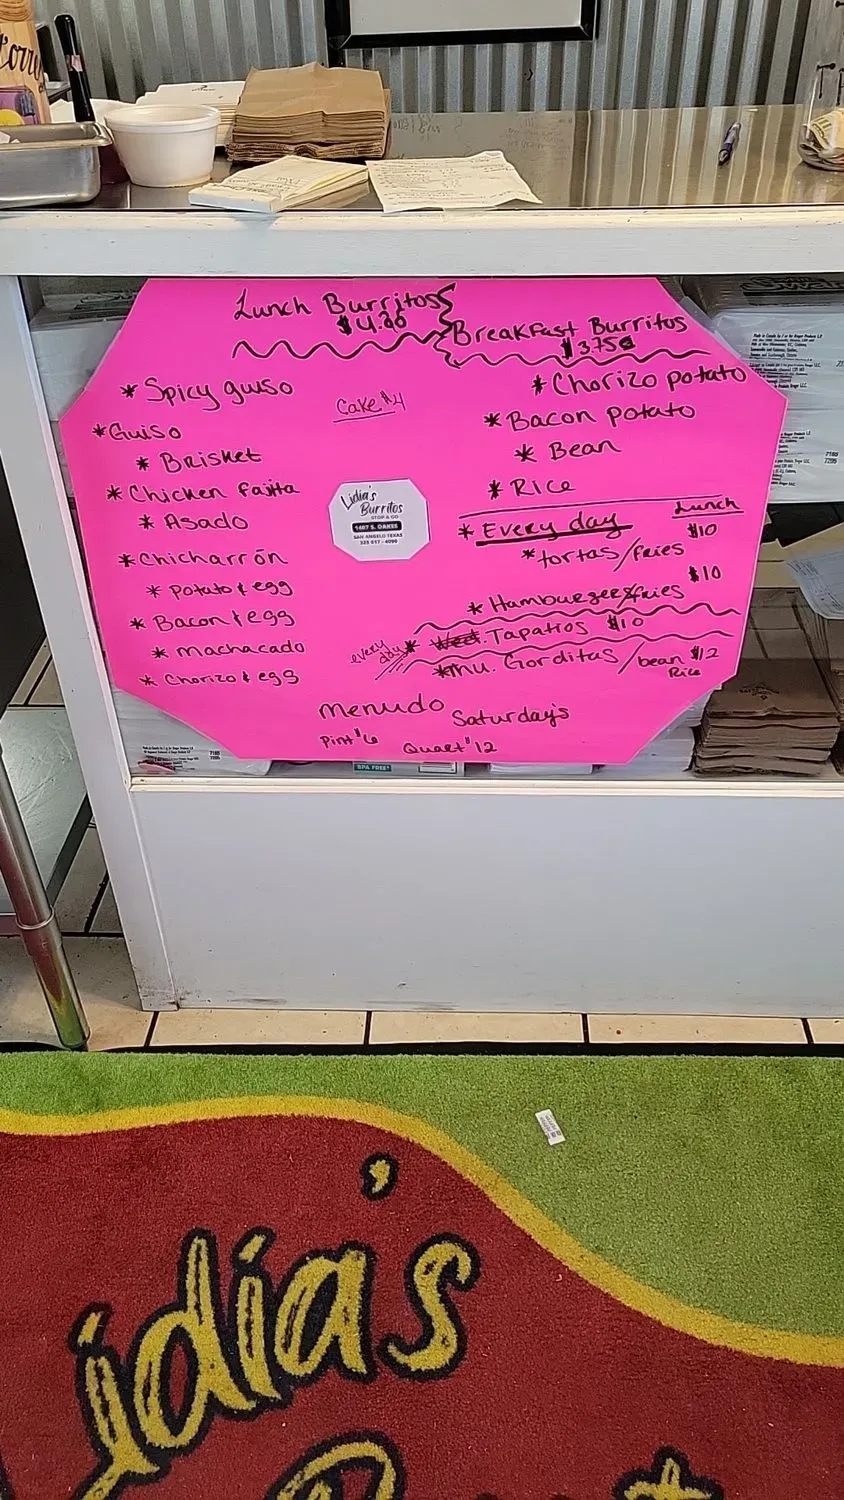 Lunch Burritos
Breakfast Burritos
$3.75¢
* Spicy guiso
* Guiso
* Brisket
* Chicken fajita
* Asado
* Chicharrón
* Potato & egg
* Bacon & egg
* Machacado
* Chorizo & egg
Cake $4
Lidia's
Burritos
STOP & GO
1407 S. OAKES
SAN ANGELO TEXAS
325 617 - 4090
* Chorizo potato
* Bacon potato
* Bean
* Rice
* Every day Lunch
* tortas/fries $10
* Hamburger & fries $10
every day * Wed. Tapatios $10
* mu. Gorditas / bean Rice $12
Menudo Saturday's
Pint $6 Quart $12
7165
7295
7165
7295
BPA FREE*
Lidia's